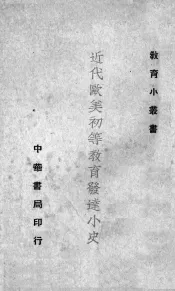 教育小叢書
近代歐美初等教育發達小史
中華書局印行